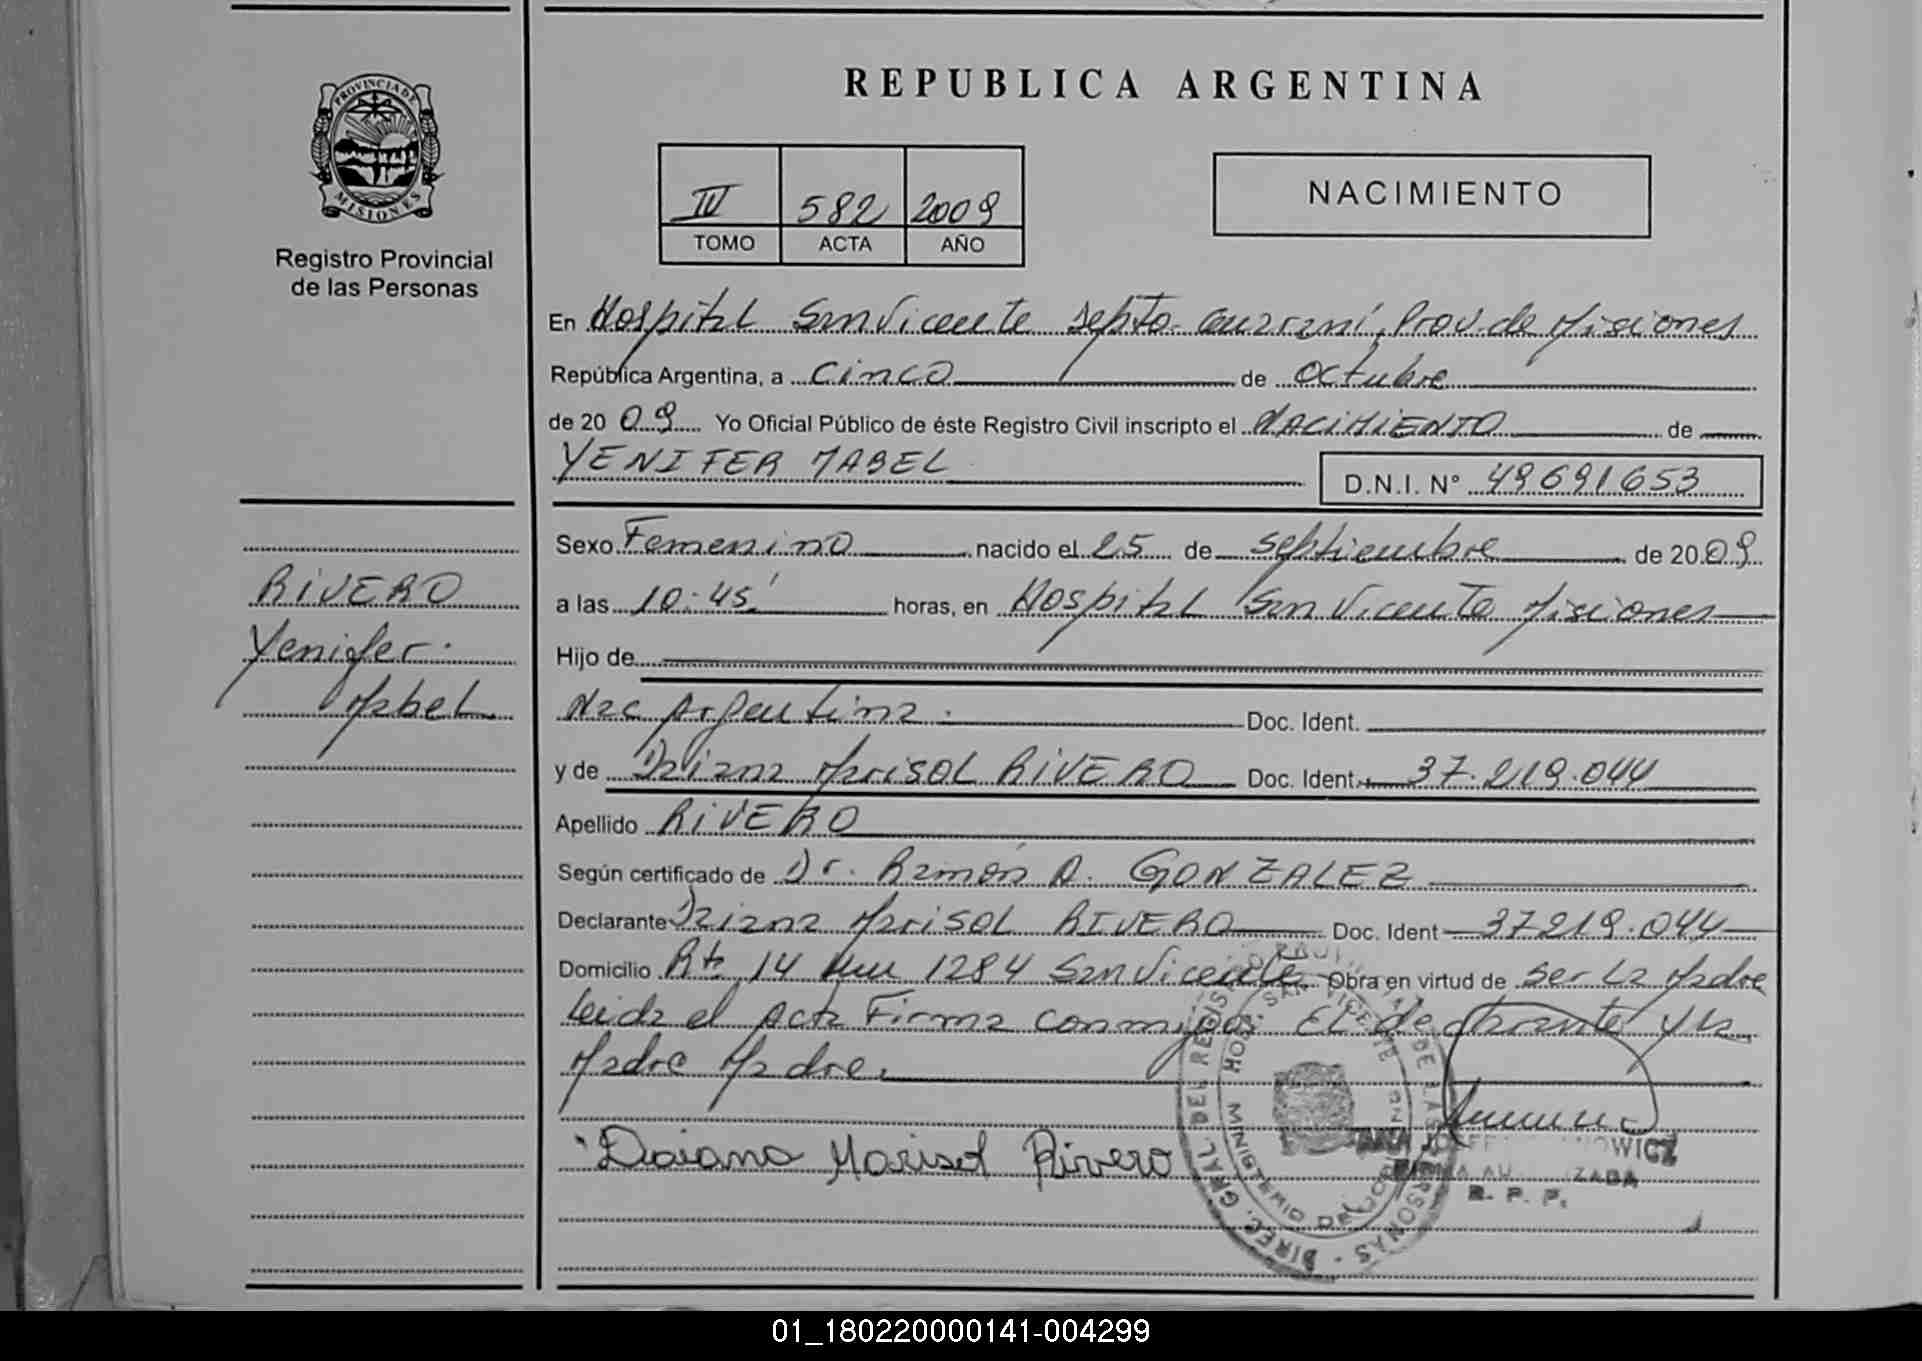 REPUBLICA ARGENTINA
PROVINCIA DE MISIONES
Registro Provincial
de las Personas
IV 582 2009
TOMO ACTA AÑO
NACIMIENTO
En Hospital San Vicente Depto. Guaraní, Prov. de Misiones
República Argentina, a Cinco de Octubre
de 2009 Yo Oficial Público de éste Registro Civil inscripto el NACIMIENTO de
YENIFER MABEL D.N.I. N° 49691653
Sexo Femenino nacido el 25 de septiembre de 2009
RIVERO
Yenifer
Mabel
a las 10:45' horas, en Hospital San Vicente Misiones
Hijo de
Nac Argentina. Doc. Ident.
y de Daiana Marisol RIVERO Doc. Ident. 37.219.044
Apellido RIVERO
Según certificado de Dr. Ramón A. GONZALEZ
Declarante Daiana Marisol RIVERO Doc. Ident 37219.044
Domicilio Rta 14 km 1284 San Vicente Obra en virtud de ser La Madre
Leida el Acta Firma conmigo: El declarante y la
Madre Madre.
Daiana Marisol Rivero
DIREC. GRAL DEL REGIS DE LAS PERSONAS
HOSP. SAN VICENTE
MINISTERIO DE
OWICZ
R. P. P.
01_180220000141-004299